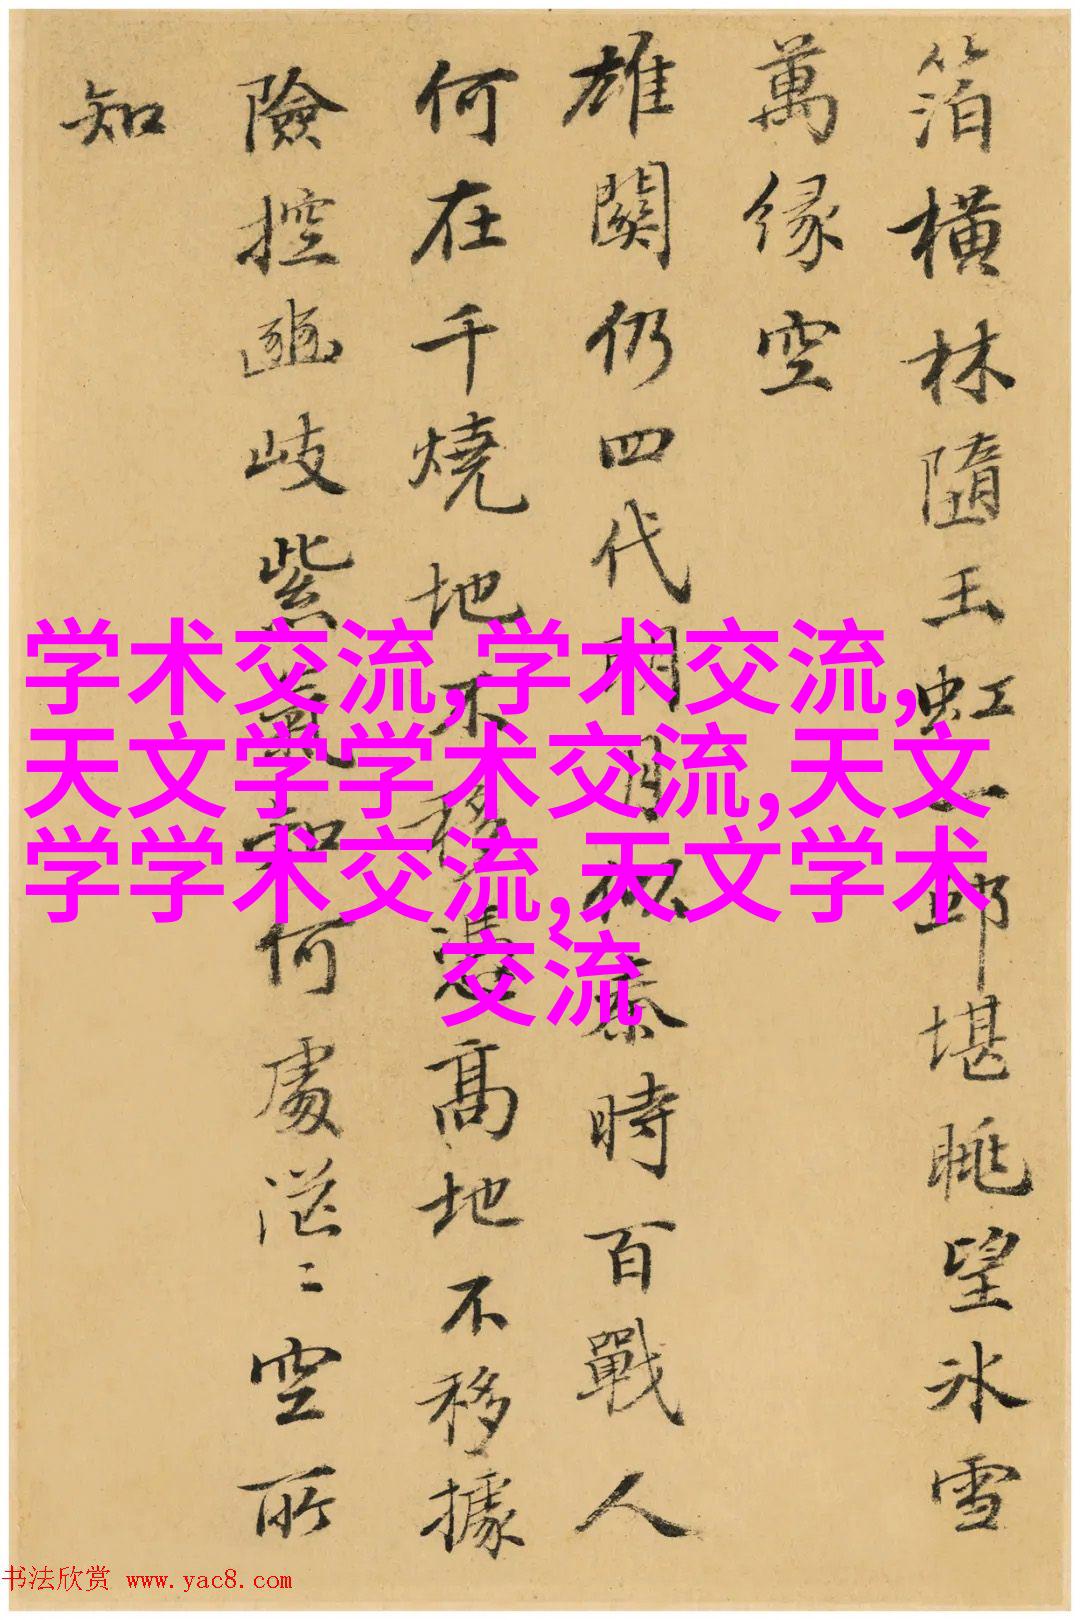 箔橫林隨玉虹一邱堪眺望氷雪
萬緣空
雄關仍四代明月似秦時百戰人
何在千燒地不移憑高地不移據
險控豳岐紫氣知何處茫〻空所
知
学术交流,学术交流,
天文学学术交流,天文
学学术交流,天文学术
交流
书法欣赏 www.yac8.com